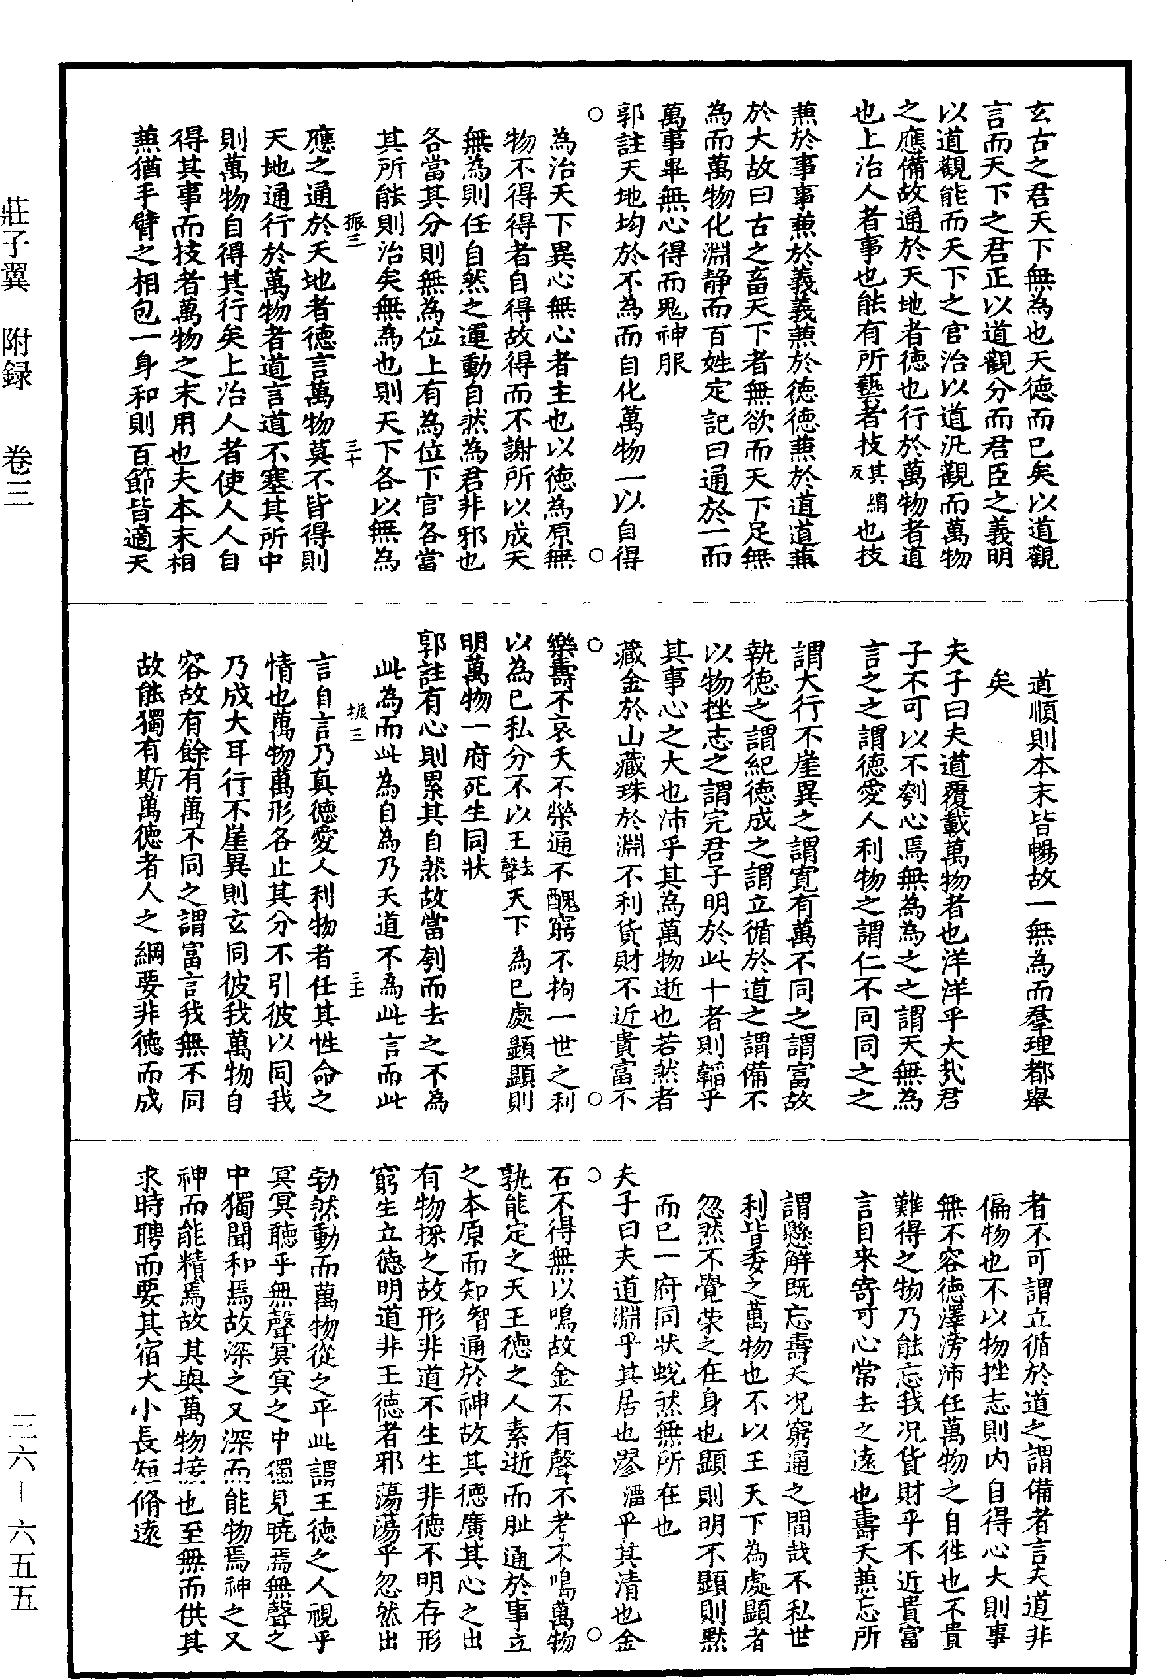 玄古之君天下無為也天德而已矣以道觀
言而天下之君正以道觀分而君臣之義明
以道觀能而天下之官治以道汎觀而萬物
之應備故通於天地者德也行於萬物者道
也上治人者事也能有所藝者技其綺反也技
兼於事事兼於義義兼於德德兼於道道兼
於大故曰古之畜天下者無欲而天下足無
為而萬物化淵静而百姓定記曰通於一而
萬事畢無心得而鬼神服
郭註天地均於不為而自化萬物一以自得
為治天下異心無心者主也以德為原無
物不得得者自得故得而不謝所以成天
無為則任自然之運動自然為君非邪也
各當其分則無為位上有為位下官各當
其所能則治矣無為也則天下各以無為
振三
三十
應之通於天地者德言萬物莫不皆得則
天地通行於萬物者道言道不塞其所中
則萬物自得其行矣上治人者使人人自
得其事而技者萬物之末用也夫本末相
兼猶手臂之相包一身和則百節皆適天
道順則本末皆暢故一無為而羣理都舉
矣
夫子曰夫道覆載萬物者也洋洋乎大哉君
子不可以不刳心焉無為為之之謂天無為
言之之謂德愛人利物之謂仁不同同之之
謂大行不崖異之謂寬有萬不同之謂富故
執德之謂紀德成之謂立循於道之謂備不
以物挫志之謂完君子明於此十者則韜乎
其事心之大也沛乎其為萬物逝也若然者
藏金於山藏珠於淵不利貨財不近貴富不
樂壽不哀夭不榮通不醜窮不拘一世之利
以為己私分不以王去聲天下為己處顯顯則
明萬物一府死生同狀
郭註有心則累其自然故當刳而去之不為
此為而此為自為乃天道不為此言而此
振三
三十一
言自言乃真德愛人利物者任其性命之
情也萬物萬形各止其分不引彼以同我
乃成大耳行不崖異則玄同彼我萬物自
容故有餘有萬不同之謂富言我無不同
故能獨有斯萬德者人之綱要非德而成
者不可謂立循於道之謂備者言夫道非
偏物也不以物挫志則內自得心大則事
無不容德澤滂沛任萬物之自徃也不貴
難得之物乃能忘我况貨財乎不近貴富
言自来寄可心常去之遠也壽夭兼忘所
謂懸解既忘壽夭况窮通之間哉不私世
利皆委之萬物也不以王天下為處顯者
忽然不覺荣之在身也顯則明不顯則默
而已一府同狀蛻然無所在也
夫子曰夫道淵乎其居也漻乎其清也金
石不得無以鳴故金石有聲不考不鳴萬物
孰能定之夫王德之人素逝而恥通於事立
之本原而知智通於神故其德廣其心之出
有物採之故形非道不生生非德不明存形
窮生立德明道非王德者邪蕩蕩乎忽然出
勃然動而萬物從之乎此謂王德之人視乎
冥冥聽乎無聲冥冥之中獨見曉焉無聲之
中獨聞和焉故深之又深而能物焉神之又
神而能精焉故其與萬物接也至無而供其
求時聘而要其宿大小長短脩遠
莊子翼 附録 卷三
三六—六五五